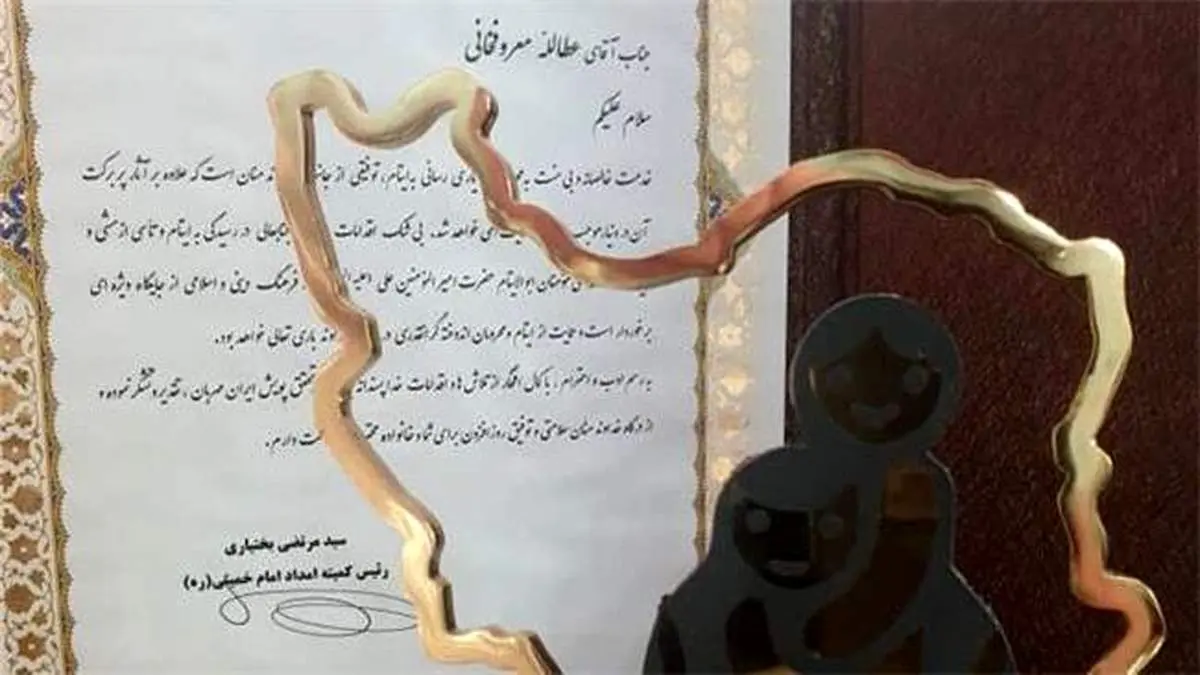 جناب آقای عطاالله معروفخانی
سلام علیکم
خدمت خالصانه و بی منت به یاری رسانی به ایتام، توفیقی از منان است که علاوه بر آثار پر برکت
آن در دنیا، موجب خواهد شد. بی شک اقدامات جنابعالی در رسیدگی به ایتام و تأسی از مشی و
مؤمنان ابوالایتام حضرت امیرالمؤمنین علی فرهنگ دینی و اسلامی از جایگاه ویژه ای
برخوردار است و حمایت از ایتام و محرومان اندوخته گرانقدری باری تعالی خواهد بود.
به رسم ادب و احترام، با کمال افتخار از تلاش ها و اقدامات خداپسندانه تحقق پویش ایران مهربان، تقدیر و تشکر نموده و
از درگاه خداوند منان سلامتی و توفیق روزافزون برای شما و خانواده دارم.
سید مرتضی بختیاری
رئیس کمیته امداد امام خمینی(ره)